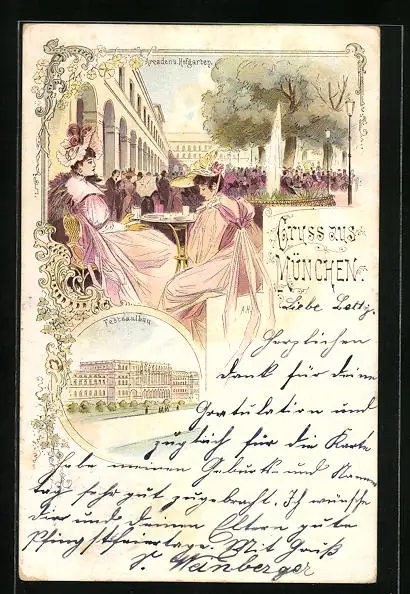 Arcaden u. Hofgarten.
Gruss aus
MÜNCHEN.
Festsaalbau
A.K.
Liebe Betty.
Herzlichen
Dank für deine
Gratulation und
zugleich für die Karte
habe meinen Geburts- und Namens
tag sehr gut zugebracht. Ich wünsche
dir und deinen Eltern gute
Pfingstfeiertage. Mit Gruß
Weinberger